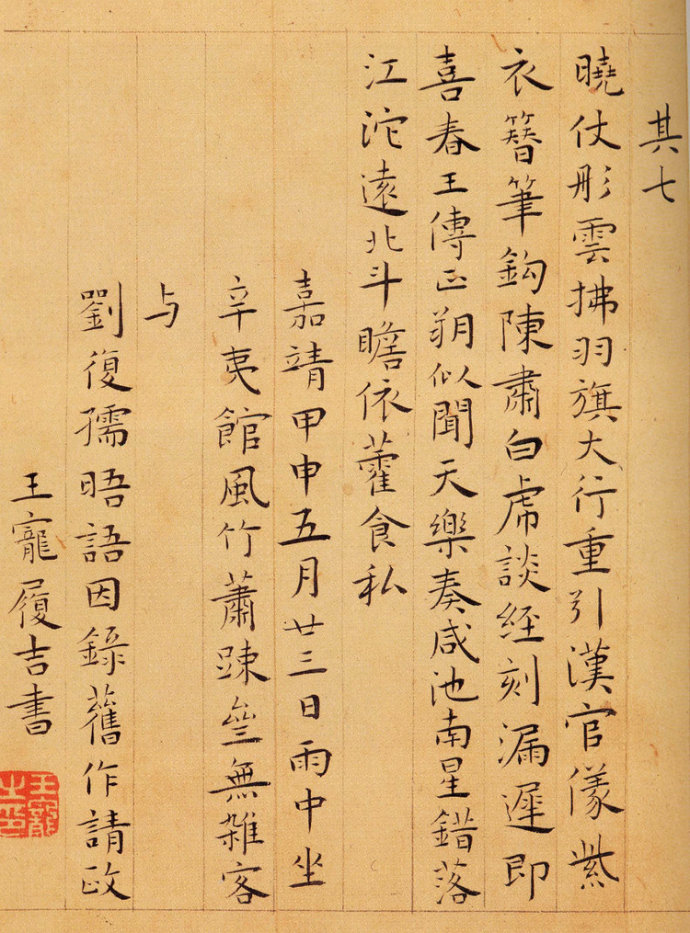 其七
曉仗彤雲拂羽旗大行重引漢官儀紫
衣簪筆鈎陳肅白虎談経刻漏遲即
喜春王傳正朔似聞天樂奏咸池南星錯落
江沱遠北斗瞻依藿食私
嘉靖甲申五月廿三日雨中坐
辛夷館風竹蕭踈無雜客
与
劉復孺晤語因錄舊作請政
王寵履吉書
王寵之印